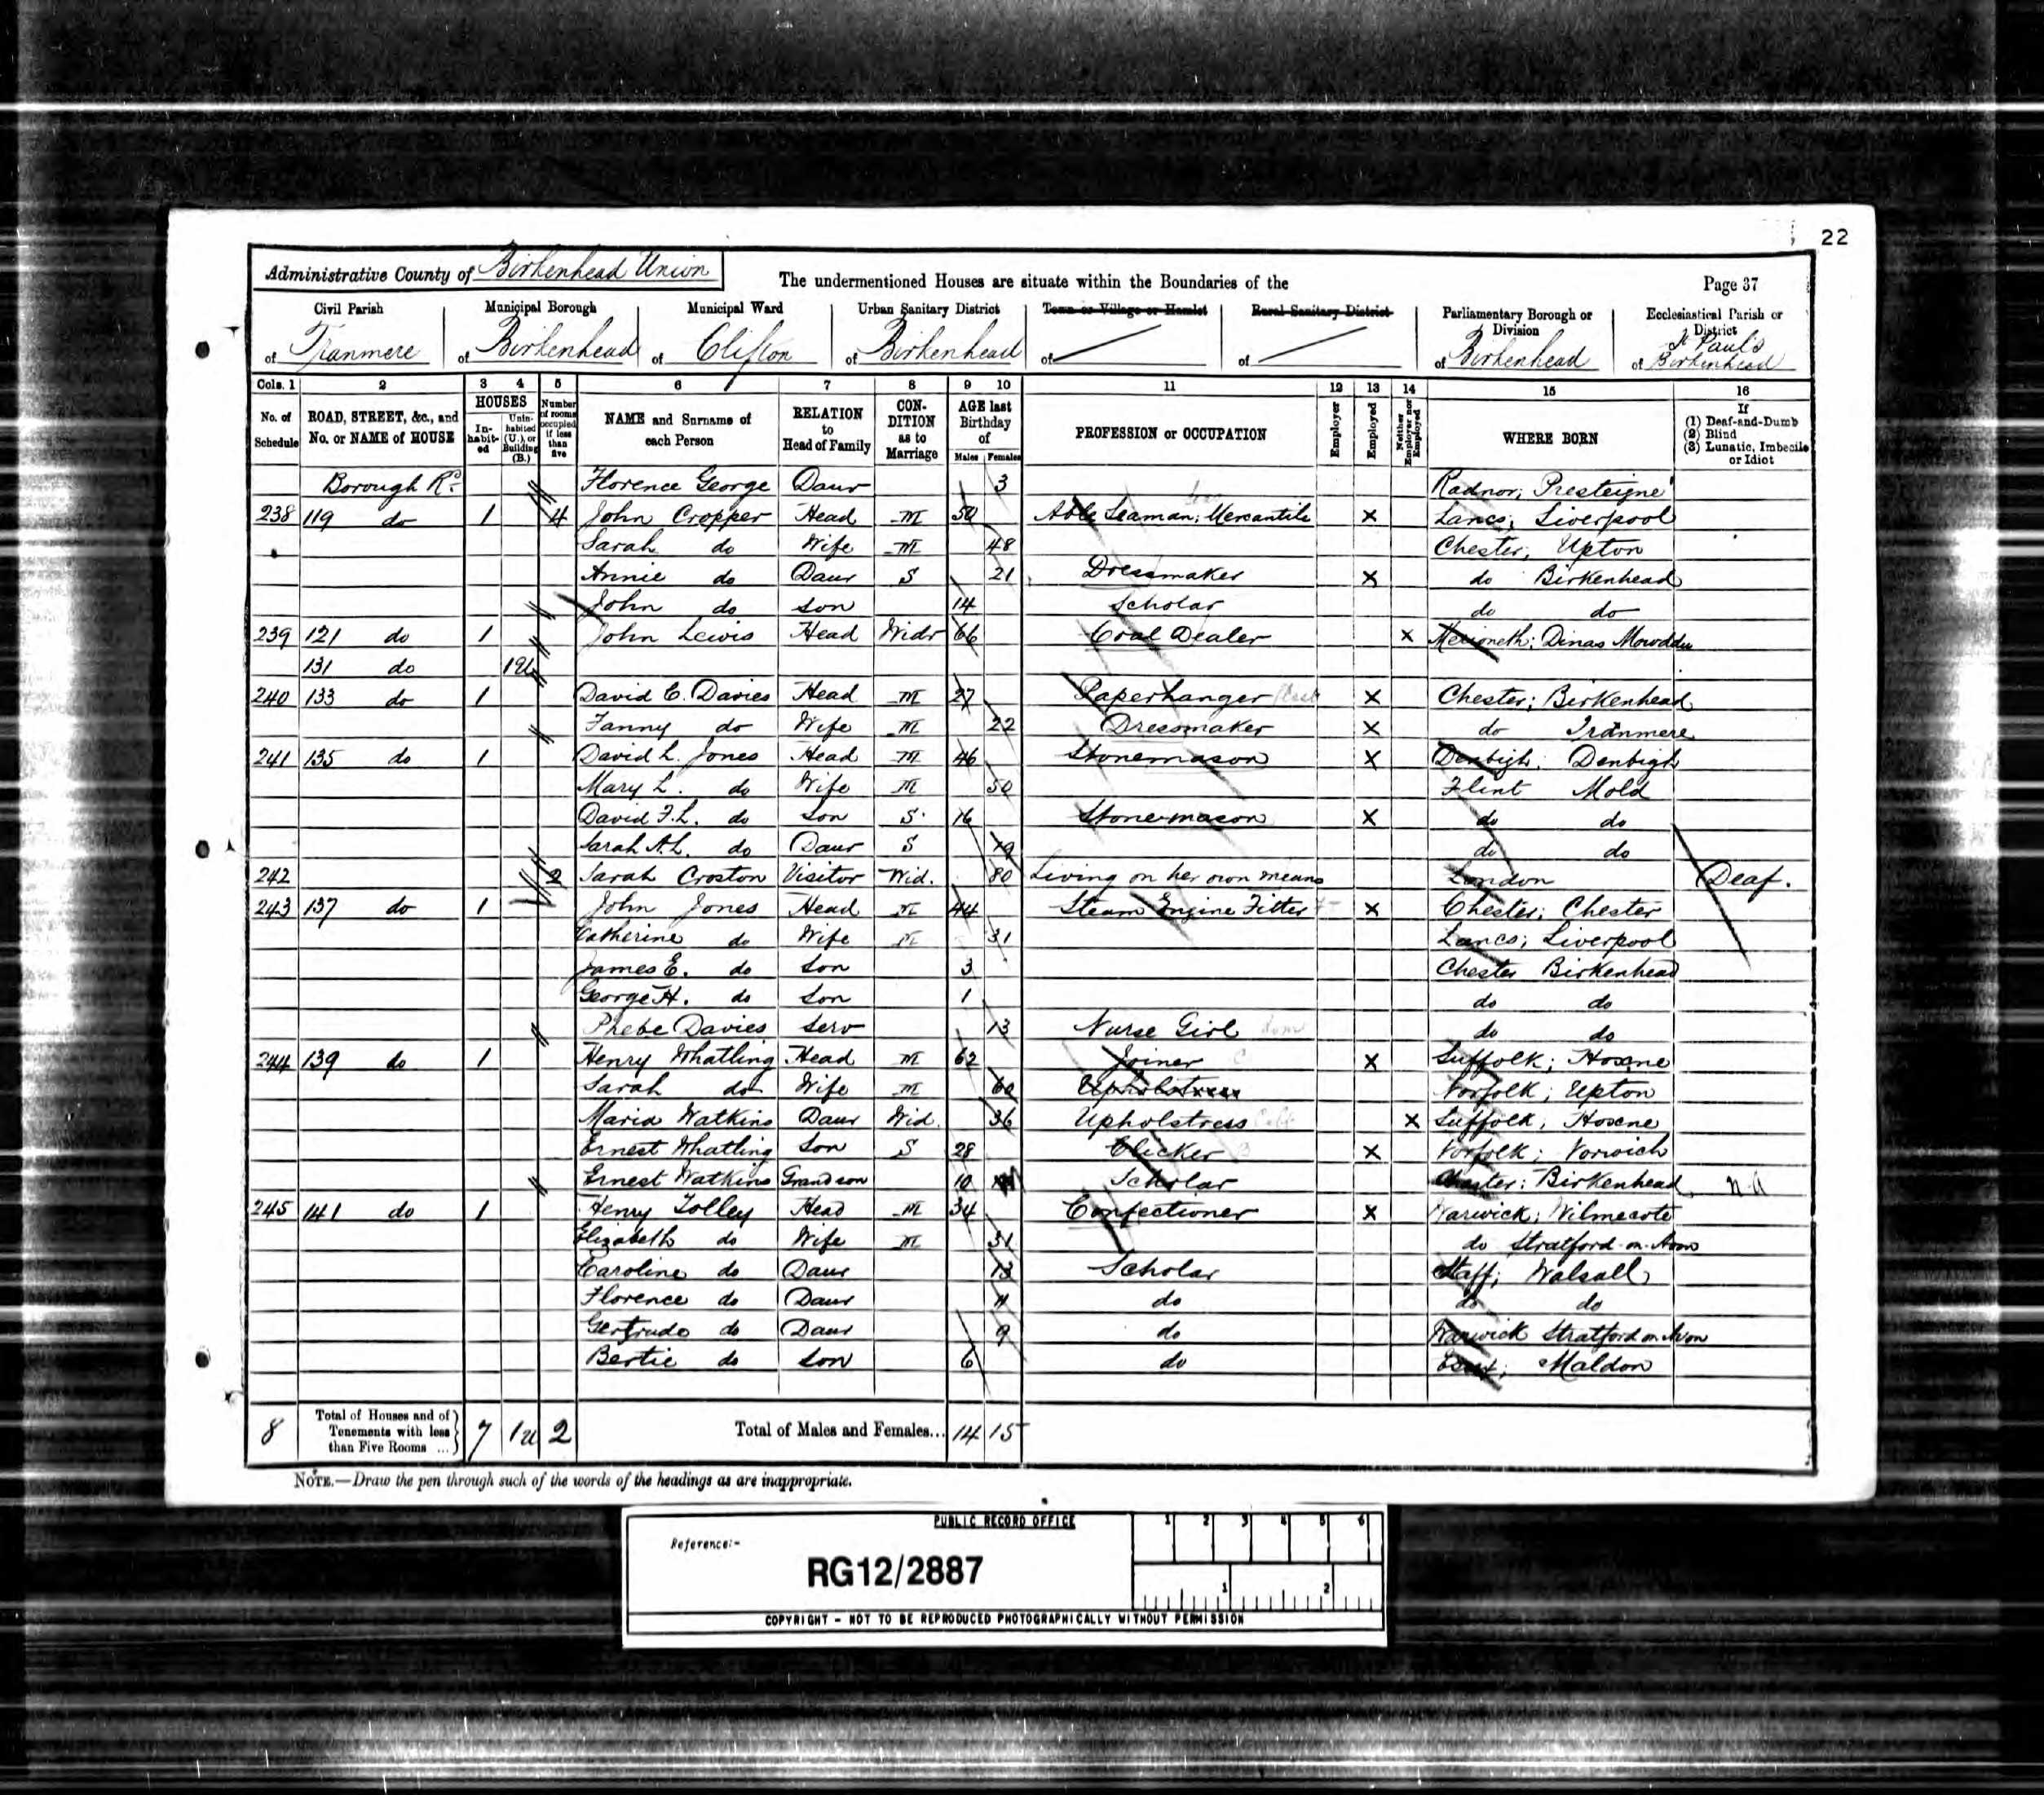 22
Administrative County of Birkenhead Union The undermentioned Houses are situate within the Boundaries of the Page 37
Civil Parish of Tranmere
Municipal Borough of Birkenhead
Municipal Ward of Clifton
Urban Sanitary District of Birkenhead
Town or Village or Hamlet of
Rural Sanitary District of
Parliamentary Borough or Division of Birkenhead
Ecclesiastical Parish or District of St Paul's Birkenhead
Cols. 1 2 3 4 5 6 7 8 9 10 11 12 13 14 15 16
No. of Schedule
ROAD, STREET, &c., and No. or NAME of HOUSE
HOUSES
In-habit-ed
Unin-habited (U.), or Building (B.)
Number of rooms occupied if less than five
NAME and Surname of each Person
RELATION to Head of Family
CON-DITION as to Marriage
AGE last Birthday of
Males Females
PROFESSION or OCCUPATION
Employer
Employed
Neither Employer nor Employed
WHERE BORN
If
(1) Deaf-and-Dumb
(2) Blind
(3) Lunatic, Imbecile or Idiot
Borough Rd. Florence George Daur 3 Radnor; Presteigne
238 119 do 1 4 John Cropper Head M 50 Able Seaman; Mercantile X Lancs; Liverpool
Sarah do Wife M 48 Chester; Upton
Annie do Daur S 21 Dressmaker X do Birkenhead
John do Son 14 Scholar do do
239 121 do 1 John Lewis Head Widr 66 Coal Dealer X Merioneth; Dinas Mowddu
131 do 1U
240 133 do 1 David C. Davies Head M 27 Paperhanger X Chester; Birkenhead
Fanny do Wife M 22 Dressmaker X do Tranmere
241 135 do 1 David L. Jones Head M 46 Stonemason X Denbigh; Denbigh
Mary L. do Wife M 50 Flint Mold
David F.L. do Son S 16 Stonemason X do do
Sarah A.L. do Daur S 19 do do
242 2 Sarah Croston Visitor Wid. 80 Living on her own means London Deaf.
243 137 do 1 John Jones Head M 44 Steam Engine Fitter X Chester; Chester
Catherine do Wife M 31 Lancs; Liverpool
James E. do Son 3 Chester Birkenhead
George H. do Son 1 do do
Phebe Davies Serv 13 Nurse Girl dom do do
244 139 do 1 Henry Whatling Head M 62 Joiner X Suffolk; Hoxne
Sarah do Wife M 60 Upholstress Norfolk; Upton
Maria Watkins Daur Wid. 36 Upholstress X Suffolk; Hoxne
Ernest Whatling Son S 28 Clicker X Norfolk; Norwich
Ernest Watkins Grandson 10 Scholar Chester; Birkenhead
245 141 do 1 Henry Tolley Head M 34 Confectioner X Warwick; Wilmecote
Elizabeth do Wife M 31 do Stratford-on-Avon
Caroline do Daur 13 Scholar Staff; Walsall
Florence do Daur 11 do do do
Gertrude do Daur 9 do Warwick Stratford on Avon
Bertie do Son 6 do Essex; Maldon
8 Total of Houses and of Tenements with less than Five Rooms ... 7 1u 2 Total of Males and Females... 14 15
NOTE.—Draw the pen through such of the words of the headings as are inappropriate.
PUBLIC RECORD OFFICE
1 2 3 4 5 6
Reference:-
RG12/2887
1 2
COPYRIGHT - NOT TO BE REPRODUCED PHOTOGRAPHICALLY WITHOUT PERMISSION